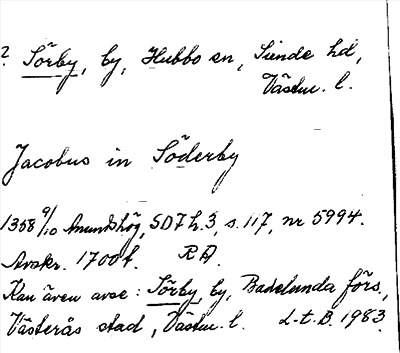 ? Sörby, by, Hubbo sn, Siende hd,
Västm. l.
Jacobus in Söderby
1358 9/10 Anundshög, SD 7 h. 3, s. 117, nr 5994.
Avskr. 1700 t. RA.
Kan även avse: Sörby, by, Badelunda förs.,
Västerås stad, Västm. l. L.t.B. 1983